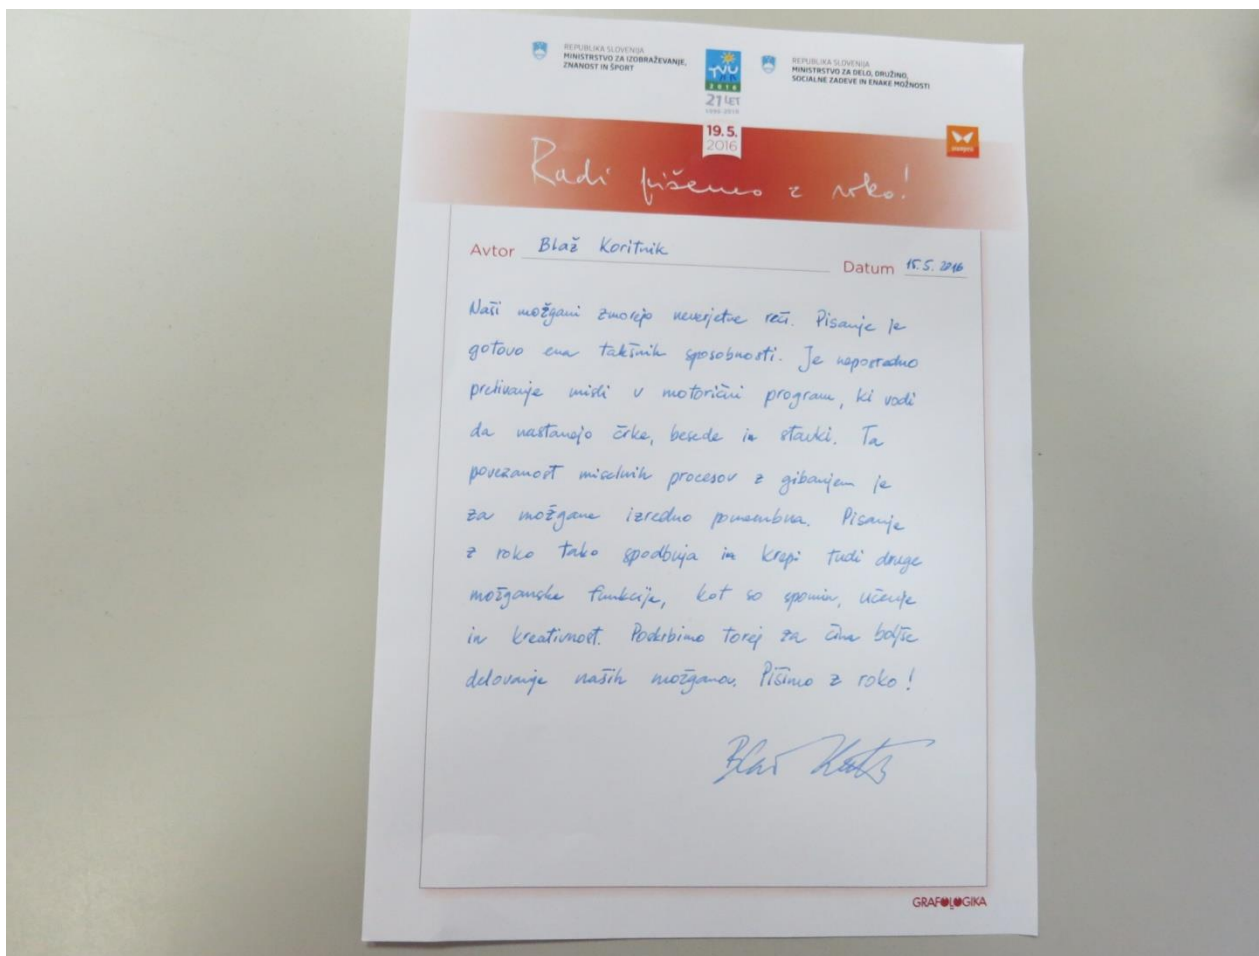 REPUBLIKA SLOVENIJA
MINISTRSTVO ZA IZOBRAŽEVANJE,
ZNANOST IN ŠPORT
TVU
2016
21 LET
1996-2016
REPUBLIKA SLOVENIJA
MINISTRSTVO ZA DELO, DRUŽINO,
SOCIALNE ZADEVE IN ENAKE MOŽNOSTI
19. 5.
2016
Radi pišemo z roko!
Avtor Blaž Koritnik
Datum 15.5.2016
Naši možgani zmorejo neverjetne reči. Pisanje je
gotovo ena takšnih sposobnosti. Je neposredno
prelivanje misli v motorični program, ki vodi
da nastanejo črke, besede in stavki. Ta
povezanost miselnih procesov z gibanjem je
za možgane izredno pomembna. Pisanje
z roko tako spodbuja in krepi tudi druge
možganske funkcije, kot so spomin, učenje
in kreativnost. Poskrbimo torej za čim boljše
delovanje naših možganov. Pišimo z roko!
GRAFOLOGIKA